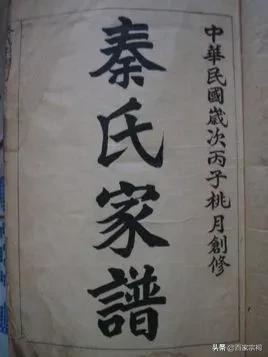 中華民國歲次丙子桃月創修
秦氏家譜
头条 @西家宗祠